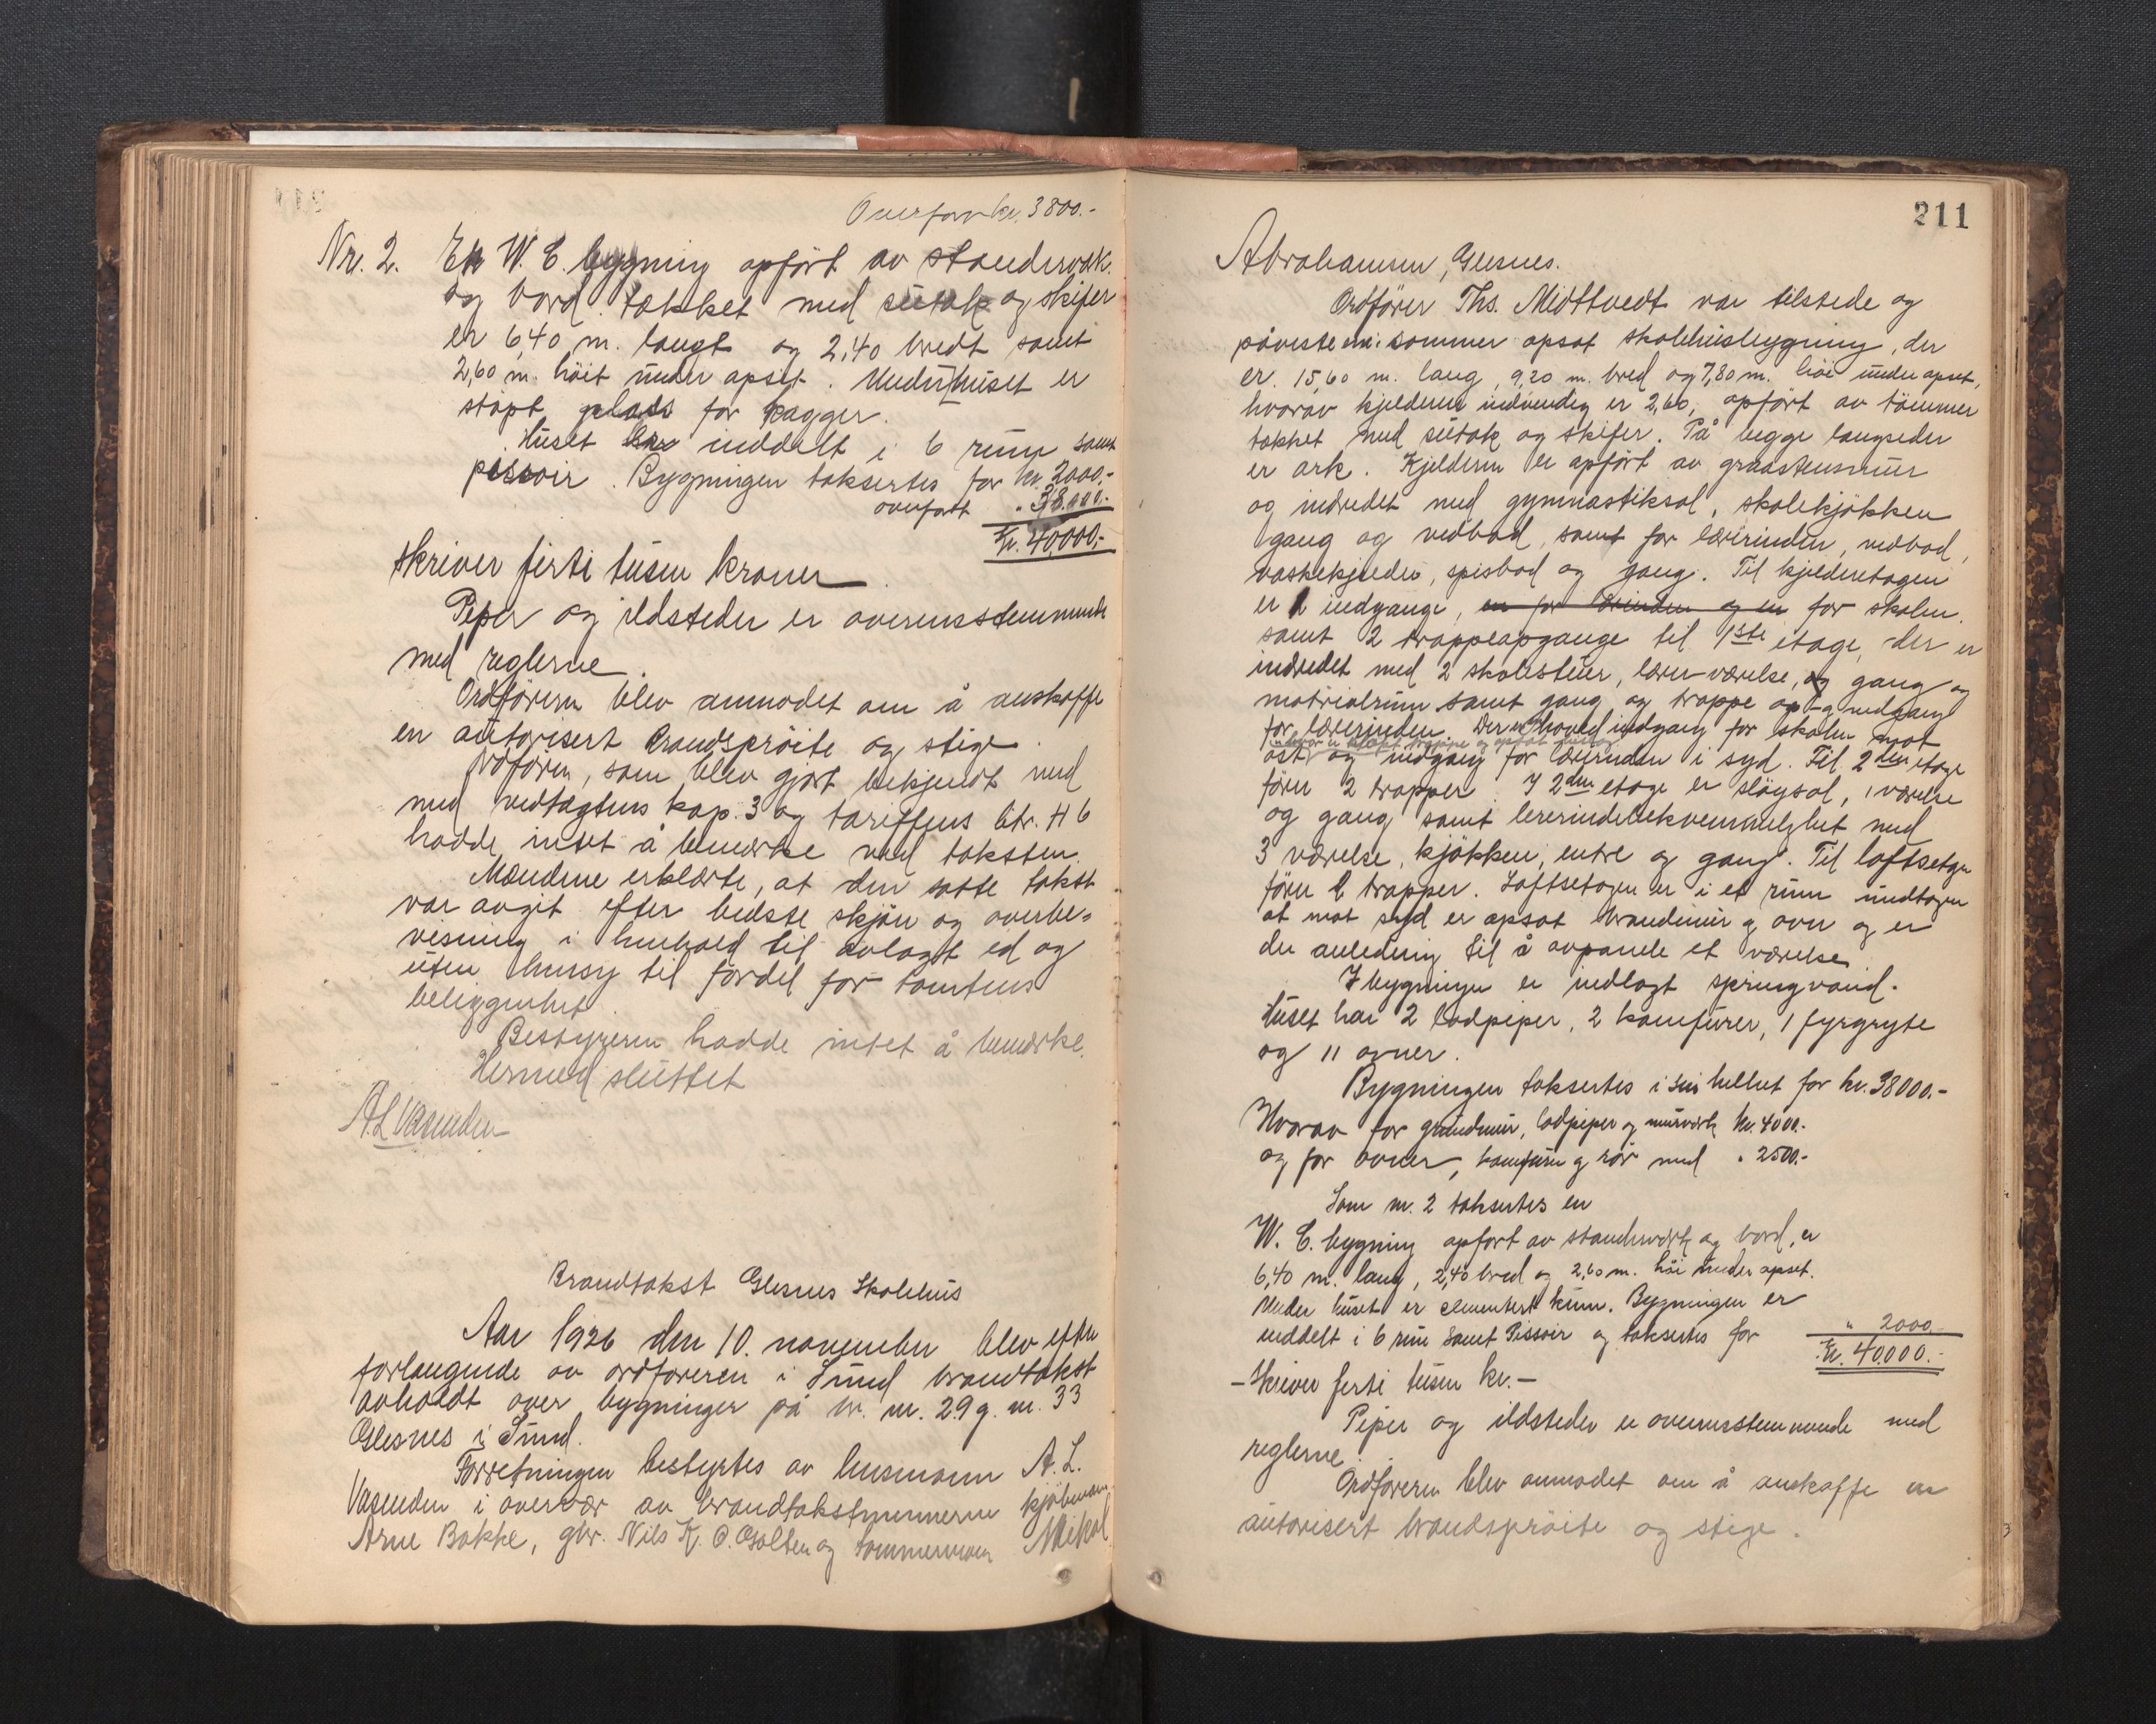 Overført kr. 3800.-
Nr. 2. En W. C. bygning opført av standerværk
og bord. tækket med sutak og skifer
er 6,40 m. langt og 2,40 bredt samt
2,60 m. høit under opset. Under huset er
støpt plads for kagger.
Huset er inddelt i 6 rum samt
pissoir. Bygningen taksertes for kr. 2000.-
overført " 38.000.-
Kr. 40,000.-
skriver firti tusen kroner
Piper og ildsteder er overensstemmende
med reglerne.
Ordføreren blev anmodet om å anskaffe
en autorisert brandsprøite og stige.
Ordføren, som blev gjort bekjendt med
med vedtægtens kap. 3 og tariffens litr. H 6
hadde intet å bemærke ved taksten.
Mændene erklærte, at den satte takst
var avgit efter bedste skjøn og overbe-
visning i henhold til avlagt ed og
uten hensy til fordel for tomtens
beliggenhet.
Bestyreren hadde intet å bemærke.
Hermed sluttet
A. L. Vasenden
Brandtakst Glesnes Skolehus
Aar 1926 den 10. november blev efter
forlangende av ordføreren i Sund brandtakst
avholdt over bygninger på br. nr. 29 g. nr. 33
Glesnes i Sund.
Forretningen bestyrtes av lensmann A. L.
Vasenden i overvær av brandtakstmennerne kjøbmann
Arne Bakke, gbr. Nils K. O. Golten og tømmermann Mikal
211
Abrahamsen, Glesnes.
Ordfører Ths. Midttvedt var tilstede og
påviste en i sommer opsat skolehusbygning, der
er 15,60 m. lang, 9,20 m. bred og 7,80 m. høi under opset,
hvorav kjelderen indvendig er 2,60, opført av tømmer
tækket med sutak og skifer. På begge langsider
er ark. Kjelderen er opført av graastensmur
og indredet med gymnastiksal, skolekjøkken
gang og vedbod samt for lærerinden, vedbod,
vaskekjelder, spisbod og gang. Til kjelderetagen
er 2 indgange, en for lærerinden og en for skolen.
samt 2 trappeopgange til 1ste etage, der er
indredet med 2 skolestuer, lærer-værelse, og gang og
materialrum samt gang og trappe op- og nedgang
for lærerinden. Der er hovedindgang for skolen mot
øst og indgang for lærerinden i syd. Til 2den etage
fører 2 trapper. I 2den etage er sløysal, 1 værelse
og gang samt lererindebekvemmelighet med
3 værelse, kjøkken, entre og gang. Til loftsetgn
fører 2 trapper. Loftsetagen er i et rum undtagen
at mot syd er opsat brandmur og ovn og er
der anledning til å avpanele et værelse.
I bygningen er indlagt springvand.
Huset har 2 lodpiper, 2 komfurer, 1 fyrgryte
og 11 ovner.
Bygningen taksertes i sin helhet for kr. 38000.-
Hvorav for grundmur, lodpiper og murverk kr. 4000.-
og for ovner, komfurer og rør med " 2500.-
Som nr. 2 taksertes en
W. C. bygning opført av standerverk og bord, er
6,40 m. lang, 2,40 bred og 2,60 m. høi under opset.
Under huset er cementert kum. Bygningen er
inddelt i 6 rum samt Pissoir og taksertes for " 2000
Kr. 40.000.-
- Skriver firti tusen kr. -
Piper og ildsteder er overensstemmende med
reglerne.
Ordføreren blev anmodet om å anskaffe en
autorisert brandsprøite og stige.